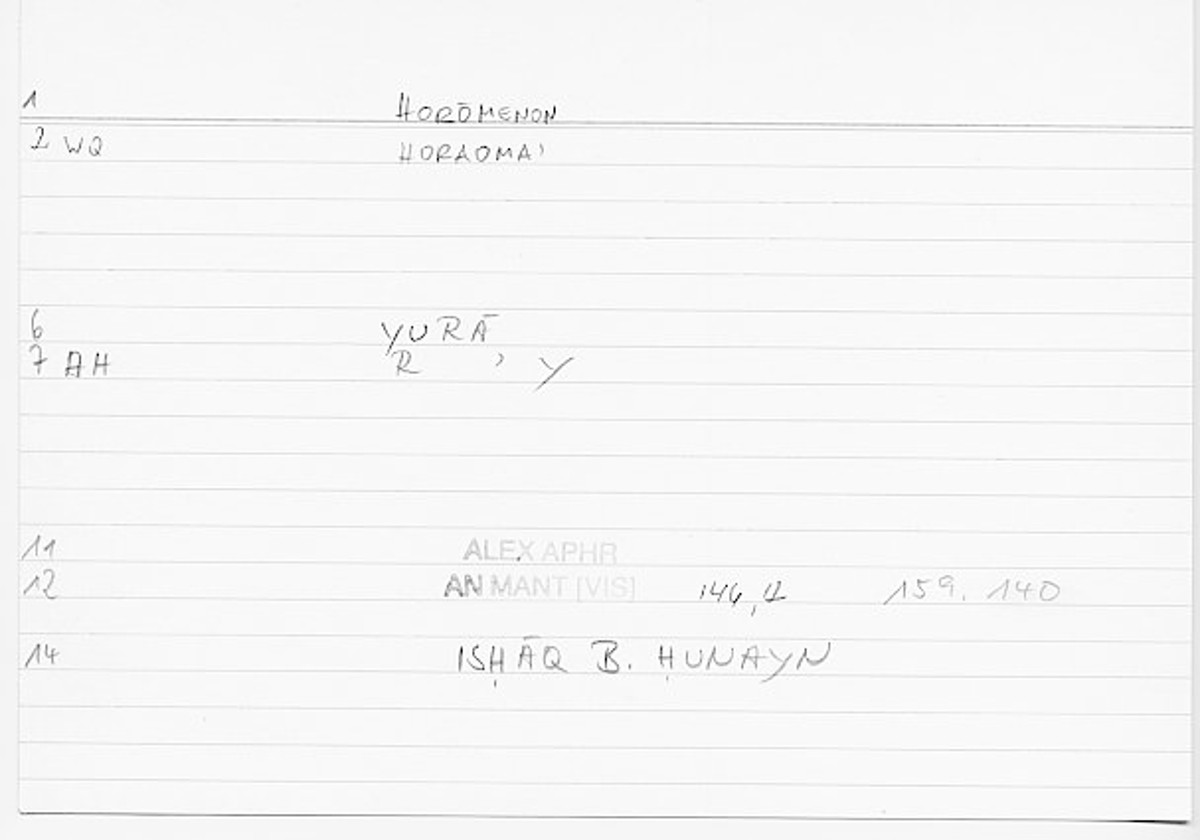 1 HORŌMENON
2 WQ HORAOMAI
6 YURĀ
7 AH R ʾ Y
11 ALEX APHR
12 AN MANT [VIS] 146, 159. 140
14 ISḤĀQ B. ḤUNAYN